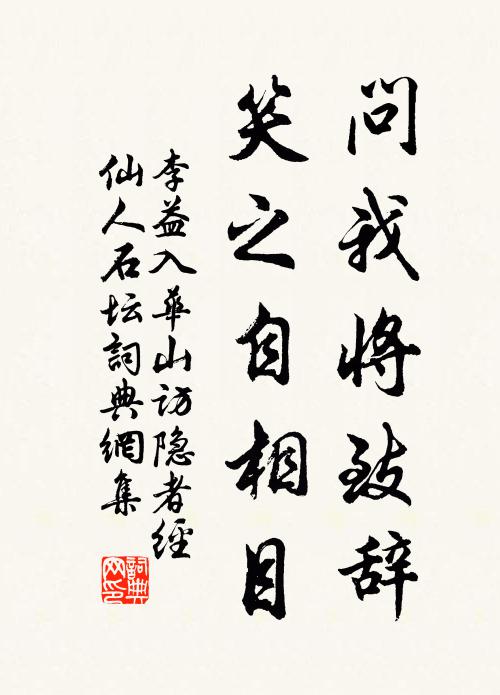 問我將致辞
笑之自相目
李益入華山访隐者經
仙人石坛詞典網集
詞典网印